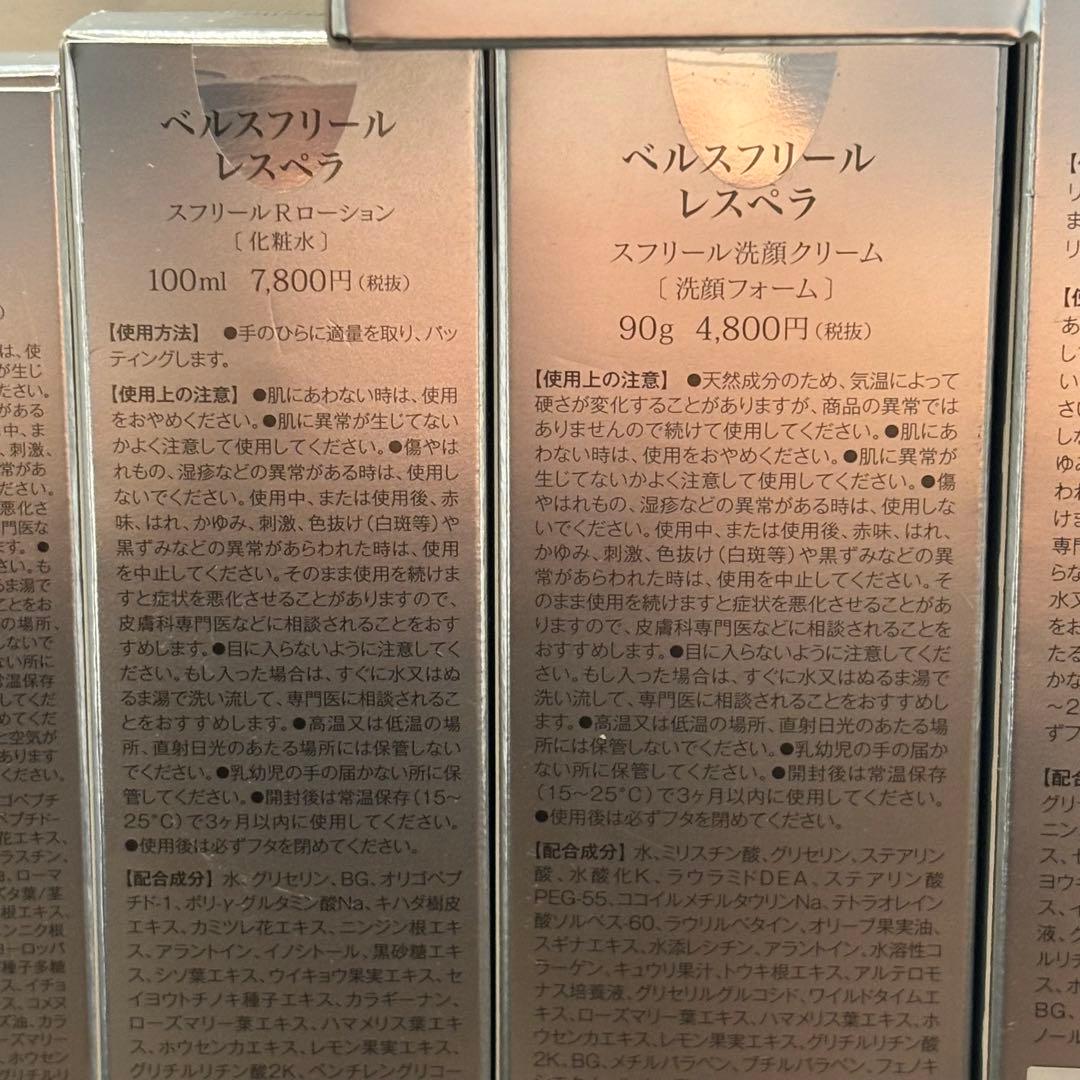 ベルスフリール
レスペラ
スフリールRローション
〔化粧水〕
100ml 7,800円(税抜)
【使用方法】 ●手のひらに適量を取り、パッ
ティングします。
【使用上の注意】 ●肌にあわない時は、使用
をおやめください。●肌に異常が生じてない
かよく注意して使用してください。●傷やは
れもの、湿疹などの異常がある時は、使用し
ないでください。使用中、または使用後、赤
味、はれ、かゆみ、刺激、色抜け(白斑等)や
黒ずみなどの異常があらわれた時は、使用
を中止してください。そのまま使用を続けま
すと症状を悪化させることがありますので、
皮膚科専門医などに相談されることをおす
すめします。●目に入らないように注意してく
ださい。もし入った場合は、すぐに水又はぬ
るま湯で洗い流して、専門医に相談されるこ
とをおすすめします。●高温又は低温の場
所、直射日光のあたる場所には保管しない
でください。●乳幼児の手の届かない所に保
管してください。●開封後は常温保存(15〜
25°C)で3ヶ月以内に使用してください。
●使用後は必ずフタを閉めてください。
【配合成分】水、グリセリン、BG、オリゴペプ
チド-1、ポリ-γ-グルタミン酸Na、キハダ樹皮
エキス、カミツレ花エキス、ニンジン根エキ
ス、アラントイン、イノシトール、黒砂糖エキ
ス、シソ葉エキス、ウイキョウ果実エキス、セ
イヨウトチノキ種子エキス、カラギーナン、
ローズマリー葉エキス、ハマメリス葉エキ
ス、ホウセンカエキス、レモン果実エキス、
グリチルリチン酸2K、ペンチレングリコー
ベルスフリール
レスペラ
スフリール洗顔クリーム
〔洗顔フォーム〕
90g 4,800円(税抜)
【使用上の注意】 ●天然成分のため、気温によって
硬さが変化することがありますが、商品の異常では
ありませんので続けて使用してください。●肌にあ
わない時は、使用をおやめください。●肌に異常が
生じてないかよく注意して使用してください。●傷
やはれもの、湿疹などの異常がある時は、使用しな
いでください。使用中、または使用後、赤味、はれ、
かゆみ、刺激、色抜け(白斑等)や黒ずみなどの異
常があらわれた時は、使用を中止してください。そ
のまま使用を続けますと症状を悪化させることがあ
りますので、皮膚科専門医などに相談されることを
おすすめします。●目に入らないように注意してくだ
さい。もし入った場合は、すぐに水又はぬるま湯で
洗い流して、専門医に相談されることをおすすめし
ます。●高温又は低温の場所、直射日光のあたる場
所には保管しないでください。●乳幼児の手の届か
ない所に保管してください。●開封後は常温保存
(15〜25°C)で3ヶ月以内に使用してください。
●使用後は必ずフタを閉めてください。
【配合成分】水、ミリスチン酸、グリセリン、ステアリン
酸、水酸化K、ラウラミドDEA、ステアリン酸
PEG-55、ココイルメチルタウリンNa、テトラオレイン
酸ソルベス-60、ラウリルベタイン、オリーブ果実油、
スギナエキス、水添レシチン、アラントイン、水溶性コ
ラーゲン、キュウリ果汁、トウキ根エキス、アルテロモ
ナス培養液、グリセリルグルコシド、ワイルドタイムエ
キス、ローズマリー葉エキス、ハマメリス葉エキス、ホ
ウセンカエキス、レモン果実エキス、グリチルリチン酸
2K、BG、メチルパラベン、ブチルパラベン、フェノキ